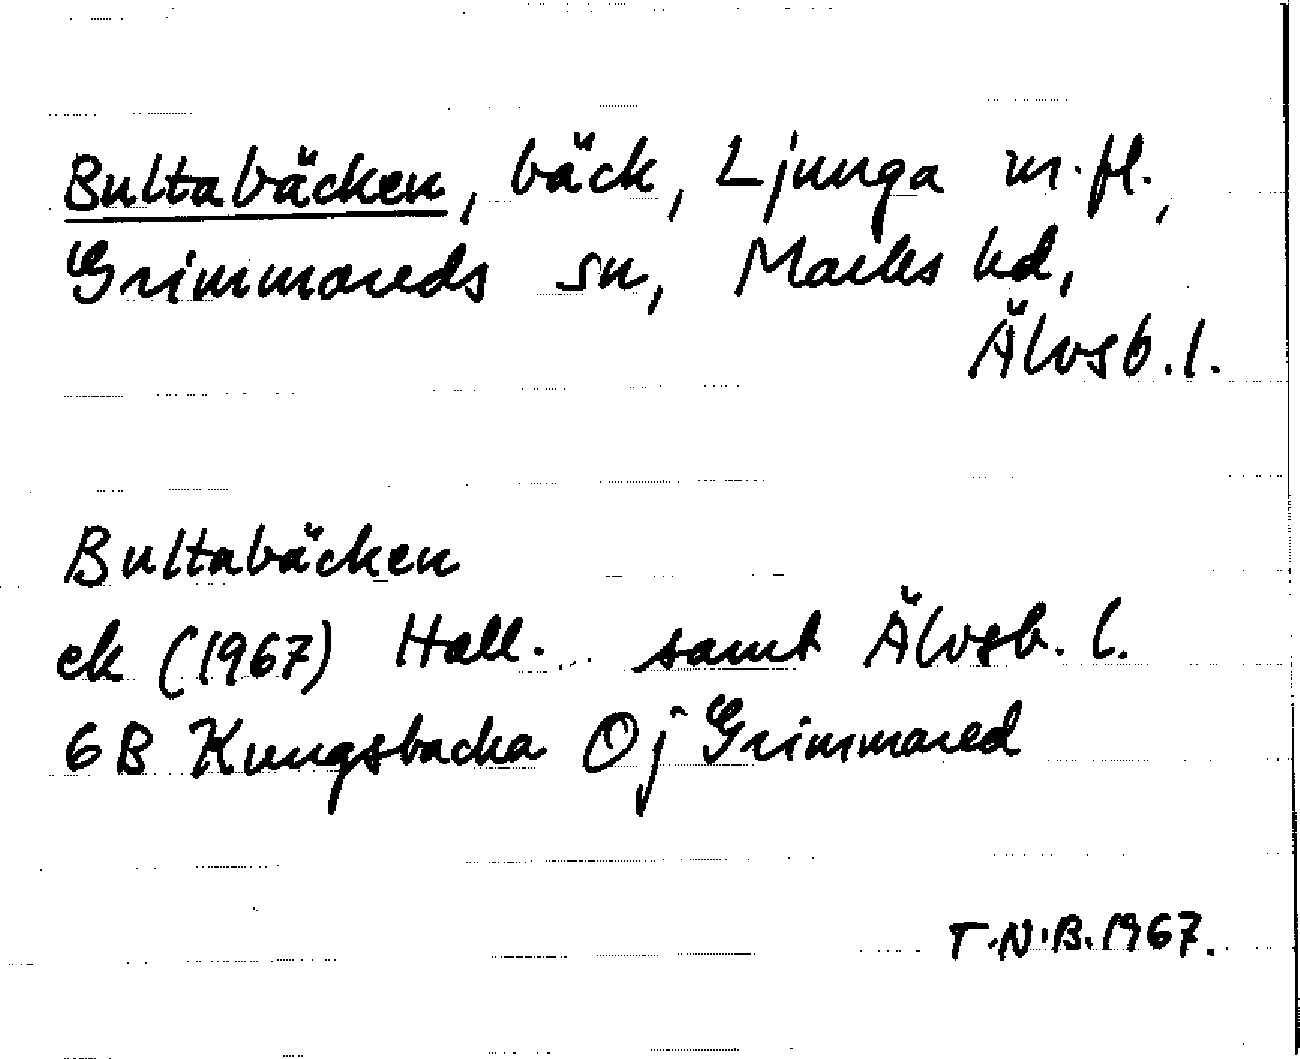 Bultabäcken, bäck, Ljunga m.fl.,
Grimmareds sn, Marks hd,
Älvsb. l.
Bultabäcken
ek (1967) Hall. samt Älvsb. l.
6B Kungsbacka Oj Grimmared
T.N.B. 1967.